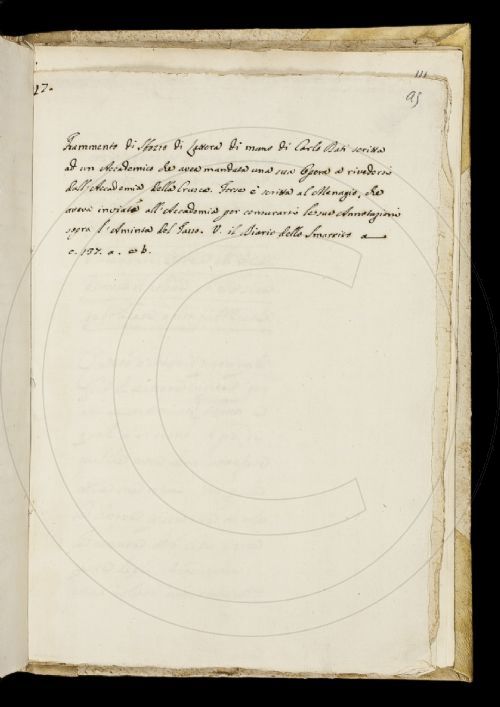 111
95
27.
Frammento di Sbozzo di Lettera di mano di Carlo Dati scritta
ad un Accademico che avea mandata una sua Opera a rivedersi
dall'Accademia della Crusca. Forse è scritta al Menagio, che
aveva inviate all'Accademia per censurarsi le sue Annotazioni
sopra l'Aminta del Tasso. V. il Diario dello Smarrito a
c. 137. a. e b.